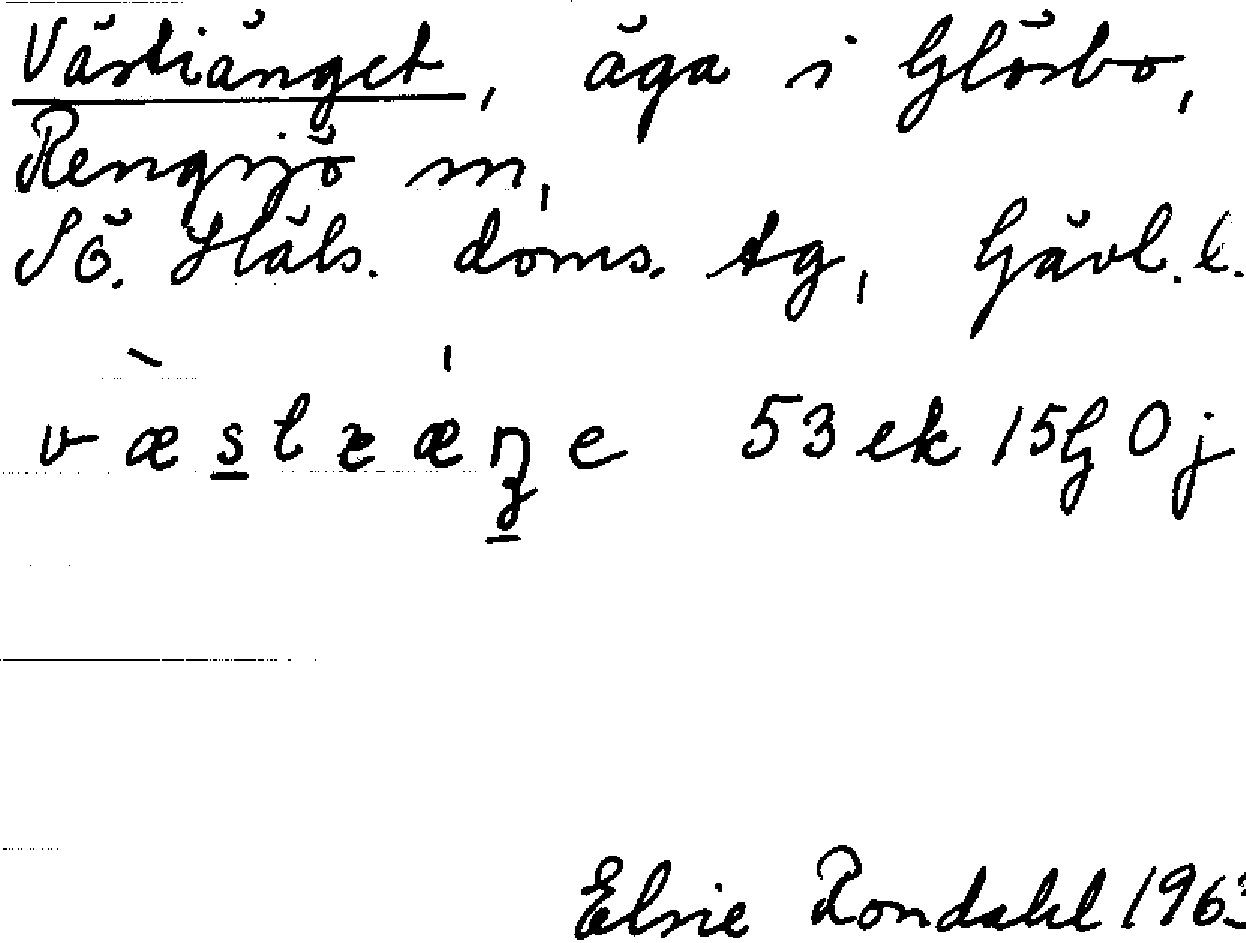 Västiänget, äga i Glösbo,
Rengsjö sn,
SÖ. Häls. doms. tg, Gävl. l.
væstɩæŋe 53 ek 15G 0j
Elsie Rondahl 1963